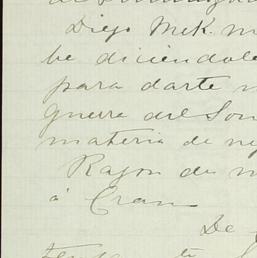 Diego McK. m
be diciéndole
para darte
guerra del Son
materia de ne
Razon de m
á Cran
De